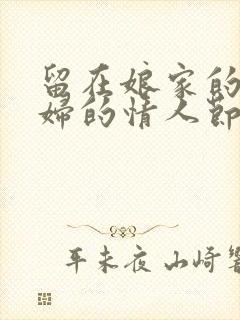 留在娘家的
婦的情人節
平未夜 山崎響